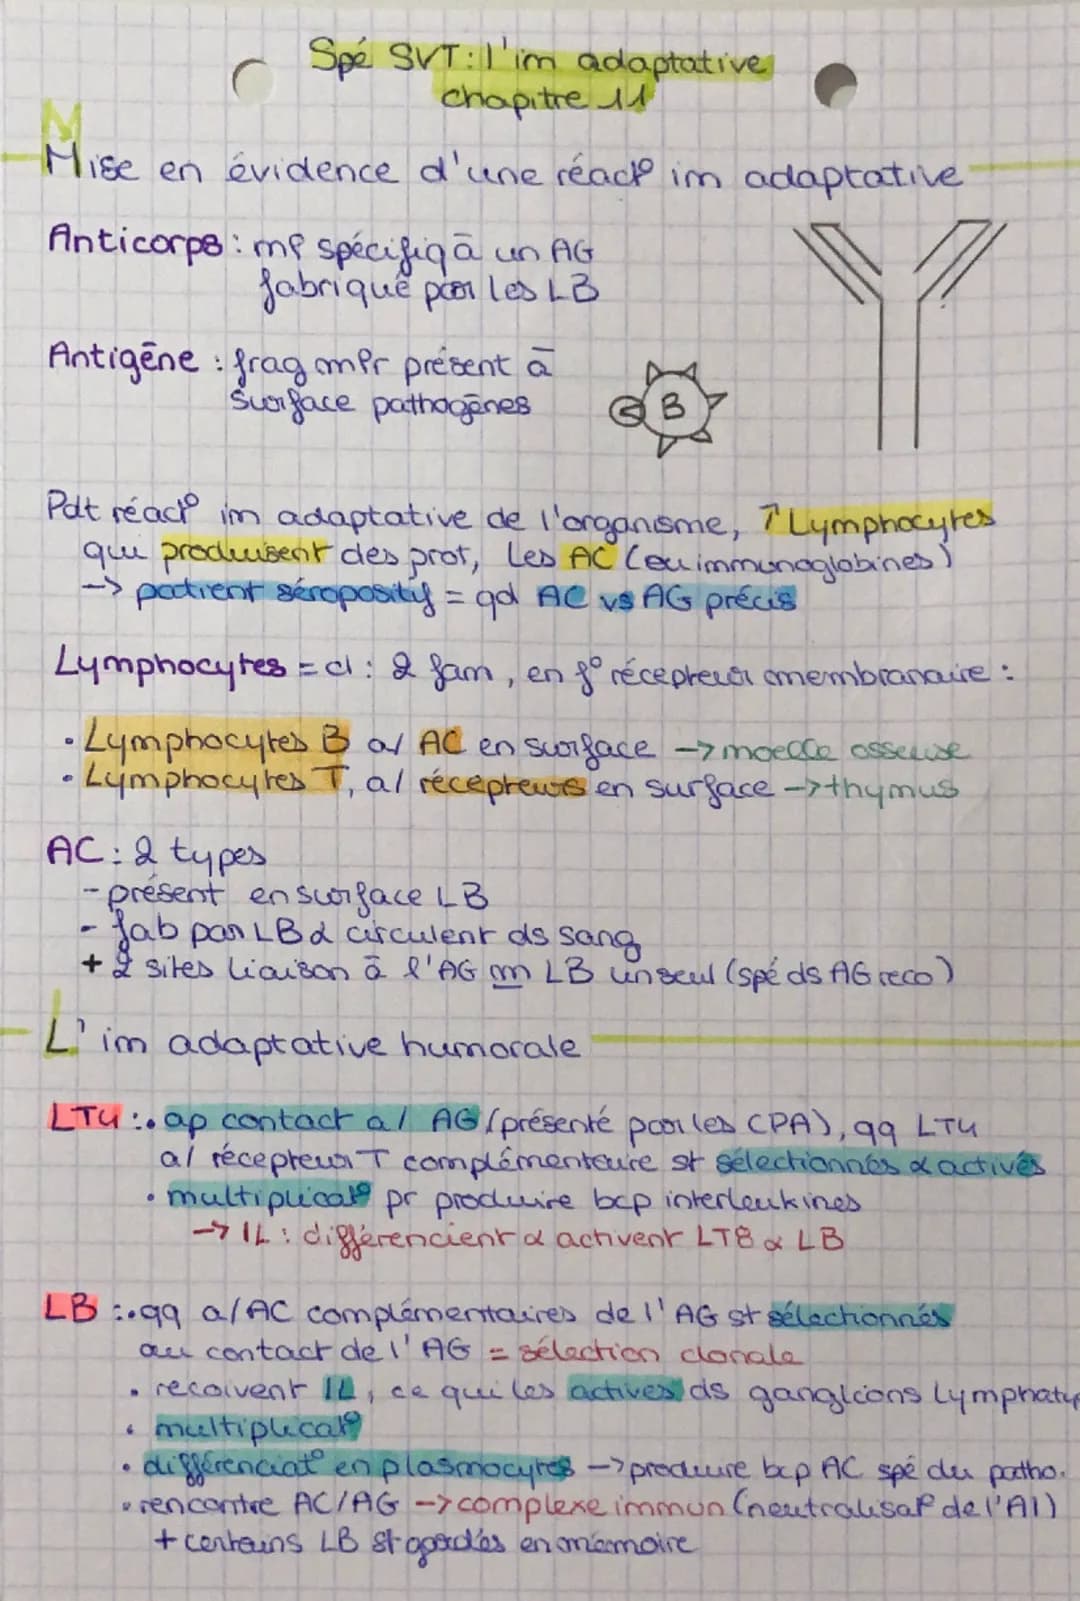 Spé SVT: l'im adaptative
chapitre 11
Mise en évidence d'une réact° im adaptative
Anticorps : mp spécifiq à un AG
fabriqué par les LB
Antigène : frag mbr présent à
surface pathogènes
B
Pdt réact° im adaptative de l'organisme, ↑ Lymphocytes
qui produisent des prot, les AC (ou immunoglobines)
-> patient séropositif = qd AC vs AG précis
Lymphocytes = cl : 2 fam, en f° récepteur membranaire :
• Lymphocytes B a/ AC en surface -> moelle osseuse
• Lymphocytes T, a/ récepteurs en surface -> thymus
AC : 2 types
- présent en surface LB
- fab par LB & circulent ds sang
+ 2 sites liaison à l'AG m LB un seul (spé ds AG reco)
L'im adaptative humorale
LT4 : • ap contact a/ AG (présenté par les CPA), qq LT4
a/ récepteur T complémentaire st sélectionnés & activés
• multiplicat° pr produire bcp interleukines
-> IL : différencient & activent LT8 & LB
LB : • qq a/ AC complémentaires de l'AG st sélectionnés
au contact de l'AG = sélection clonale
• recoivent IL, ce qui les actives ds ganglions lymphatq
• multiplicat°
• différenciat° en plasmocytes -> produire bcp AC spé du patho.
• rencontre AC/AG -> complexe immun (neutralisat° de l'AI)
+ certains LB st gardés en mémoire